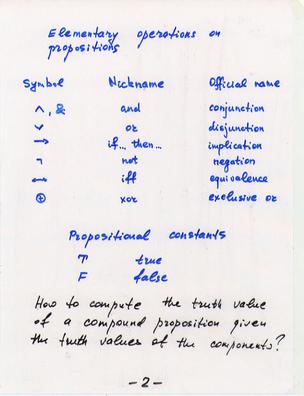 Elementary operations on
propositions
Symbol Nickname Official name
∧, & and conjunction
∨ or disjunction
→ if... then... implication
¬ not negation
↔ iff equivalence
⊕ xor exclusive or
Propositional constants
T true
F false
How to compute the truth value
of a compound proposition given
the truth values of the components?
- 2 -